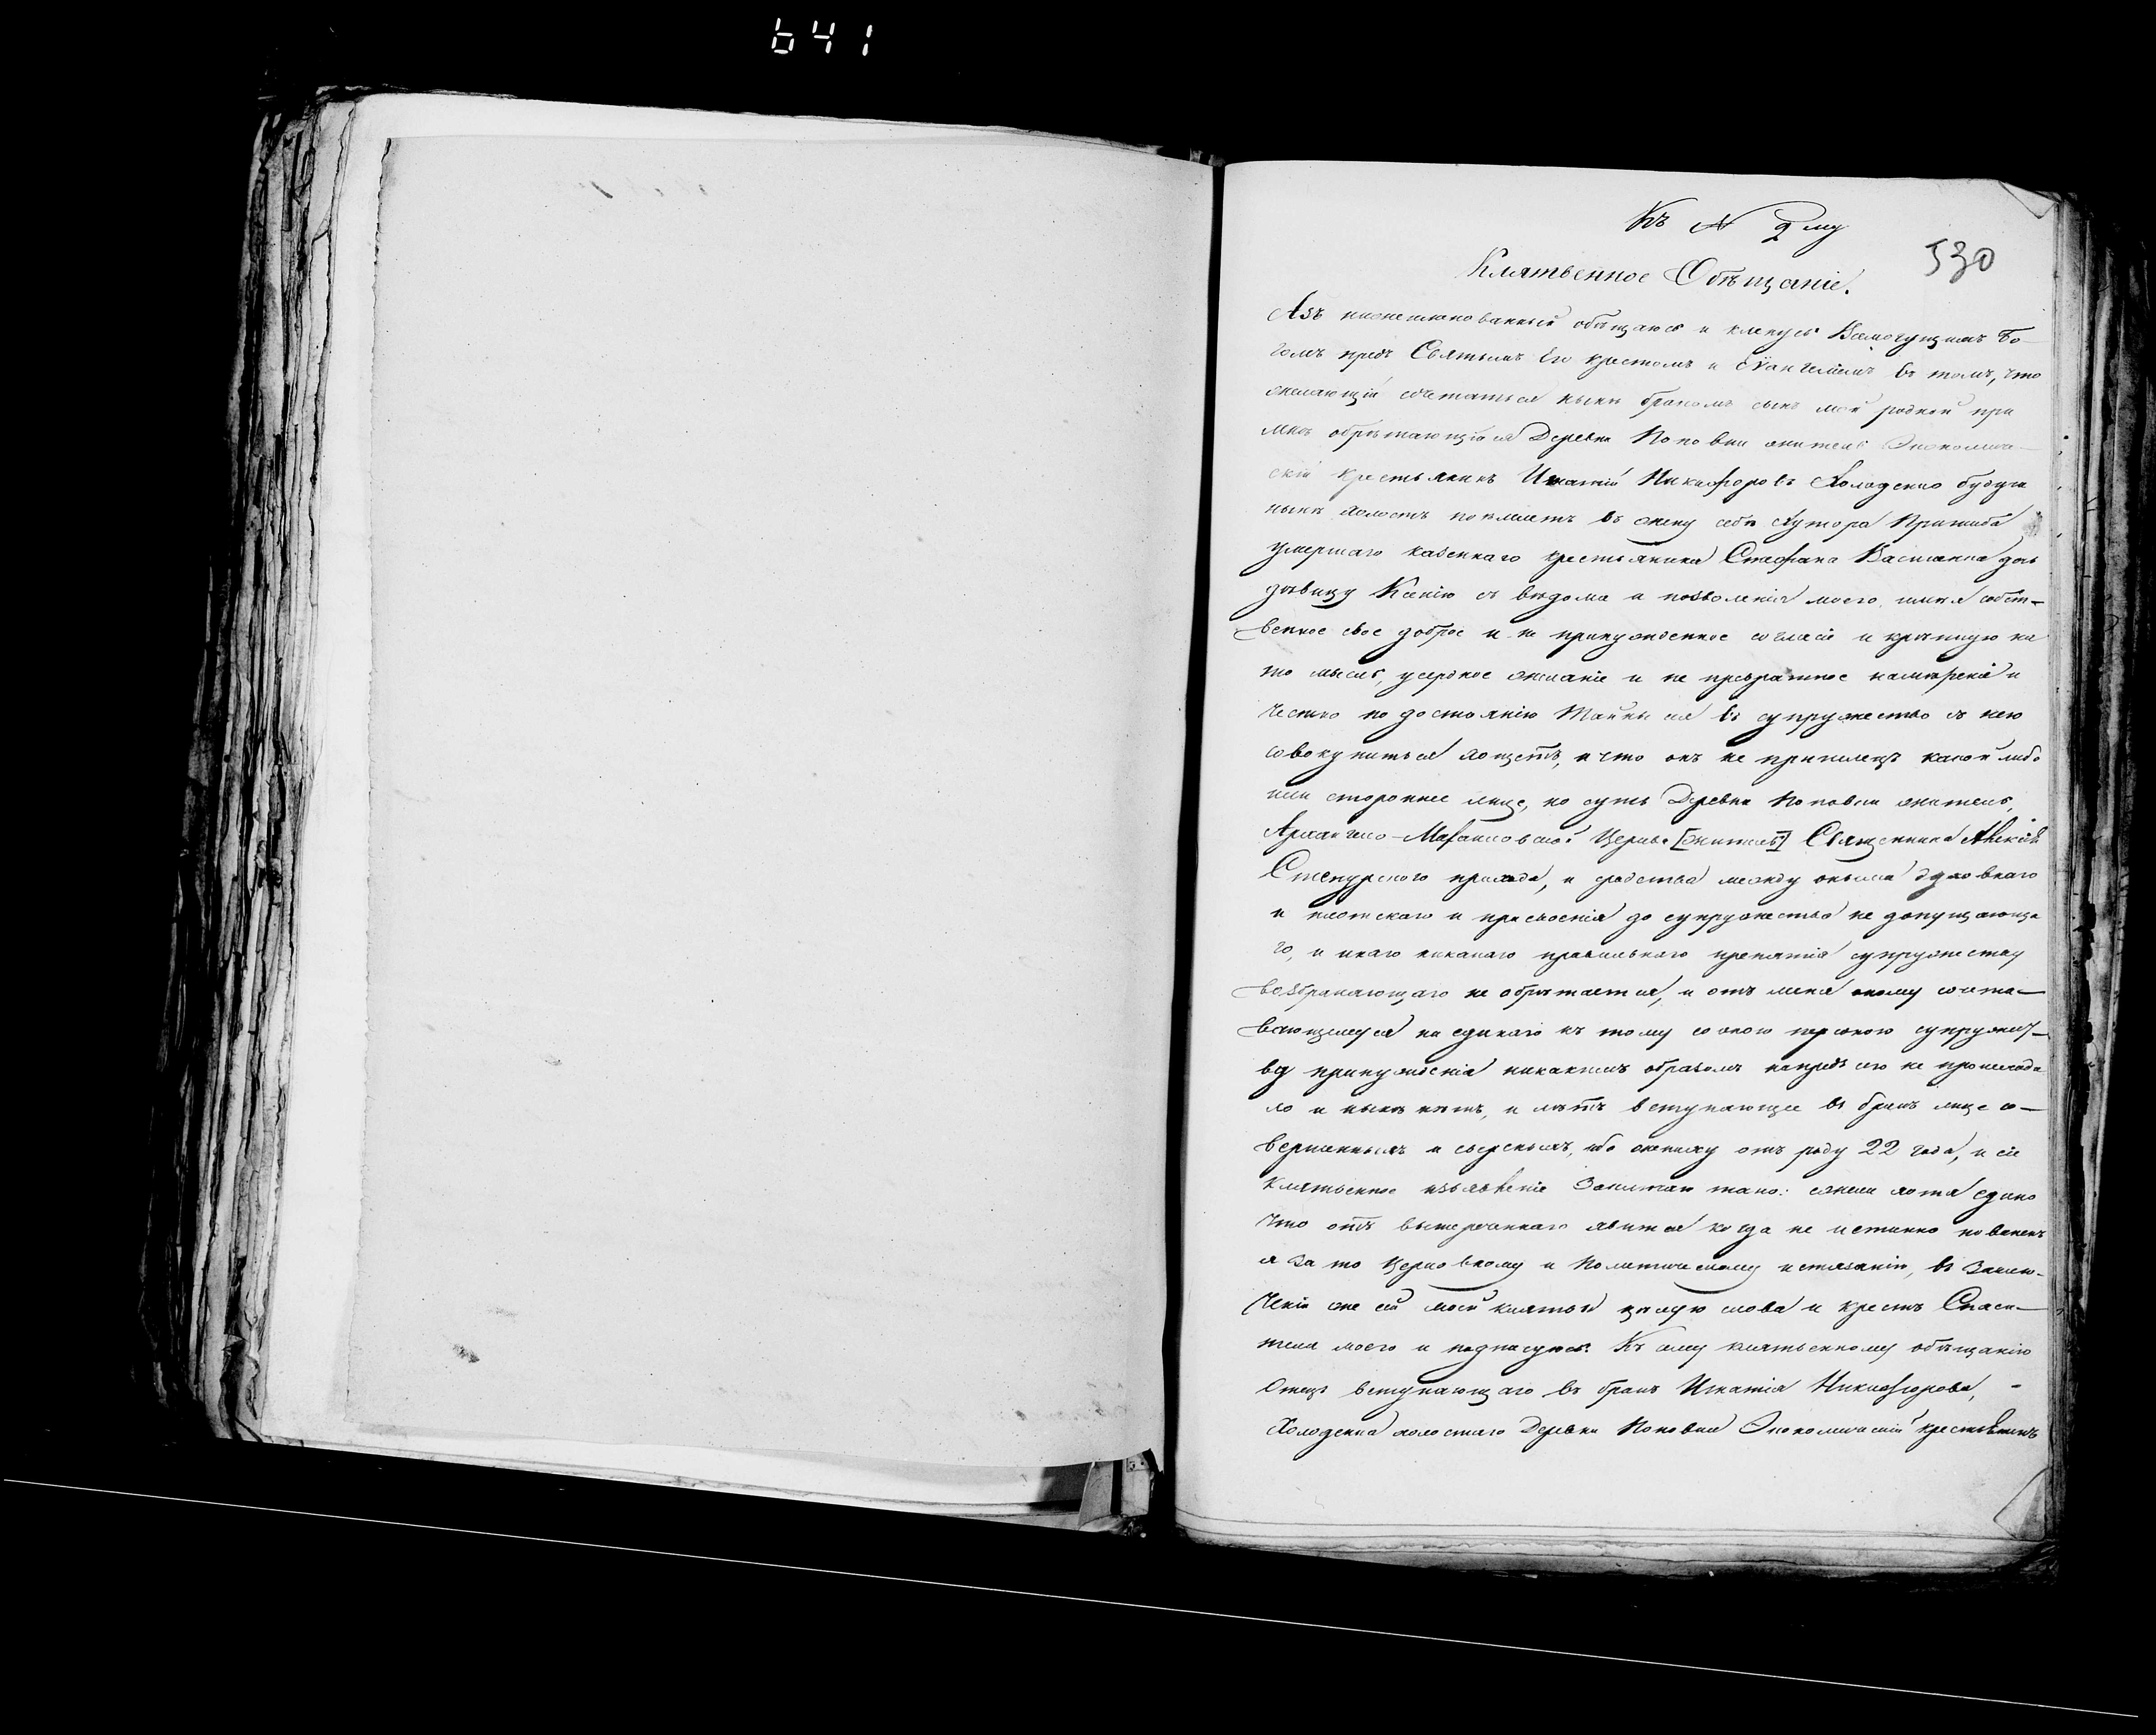 641
Къ N 2му
530
Клятвенное Обѣщаніе.
Азъ нижеименованный обѣщаюсь и кленусь Всемогущимъ Бо-
гомъ предъ Святымъ Его крестомъ и Еѵангеліемъ въ томъ, что
желающій сочетаться нынѣ бракомъ сынъ мой родной при
мнѣ обрѣтающійся Деревни Поповки житель Экономиче-
скій крестьянинъ Игнатій Никифоровъ Холоденко будучи
нынѣ холостъ поемлетъ въ жену себѣ Хутора
умершаго казеннаго крестьянина Стефана дочь
дѣвицу Ксенію съ вѣдома и позволенія моего, имѣя собст-
венное свое доброе и не принужденное согласіе и крѣпкую на
то мысль, усердное желаніе и не превратное намѣреніе и
честно по достоянію Тайны сея въ супружество съ нею
совокупиться хощетъ, и что онъ не пришлецъ какой либо
или стороннее лице, но суть Деревни Поповки житель,
Архангело-Михайловской Церкви [житель] Священника Алексѣя
прихода, и сродства между оными духовнаго
и плотскаго и присвоенія до супружества не допущающа
го, и инаго никакого правильнаго препятія супружеству
возбраняющаго не обрѣтается, и отъ мене оному сочета-
вающемуся ни единаго къ тому со оною персоною супружест-
ву принужденія никакимъ образомъ напредъ сего не происходи
ло и нынѣ нѣтъ, и лѣтъ вступающее въ бракъ лице со-
вершенныхъ и сверсныхъ, ибо жениху отъ роду 22 года, и сіе
Клятвенное изъявленіе Заключаю тако: ежели хотя едино
что отъ вышереченнаго явится когда не истинно повиненъ
я за то Церковному и Политическому истязанію, въ Заклю-
ченіе же сей моей клятвы цѣлую слова и крестъ Спаси-
теля моего и подписуюсь. Къ сему клятвенному обѣщанію
Отецъ вступающаго въ бракъ Игнатія Никифорова,
Холоденка холостаго Деревни Поповки Экономическій крестьянинъ